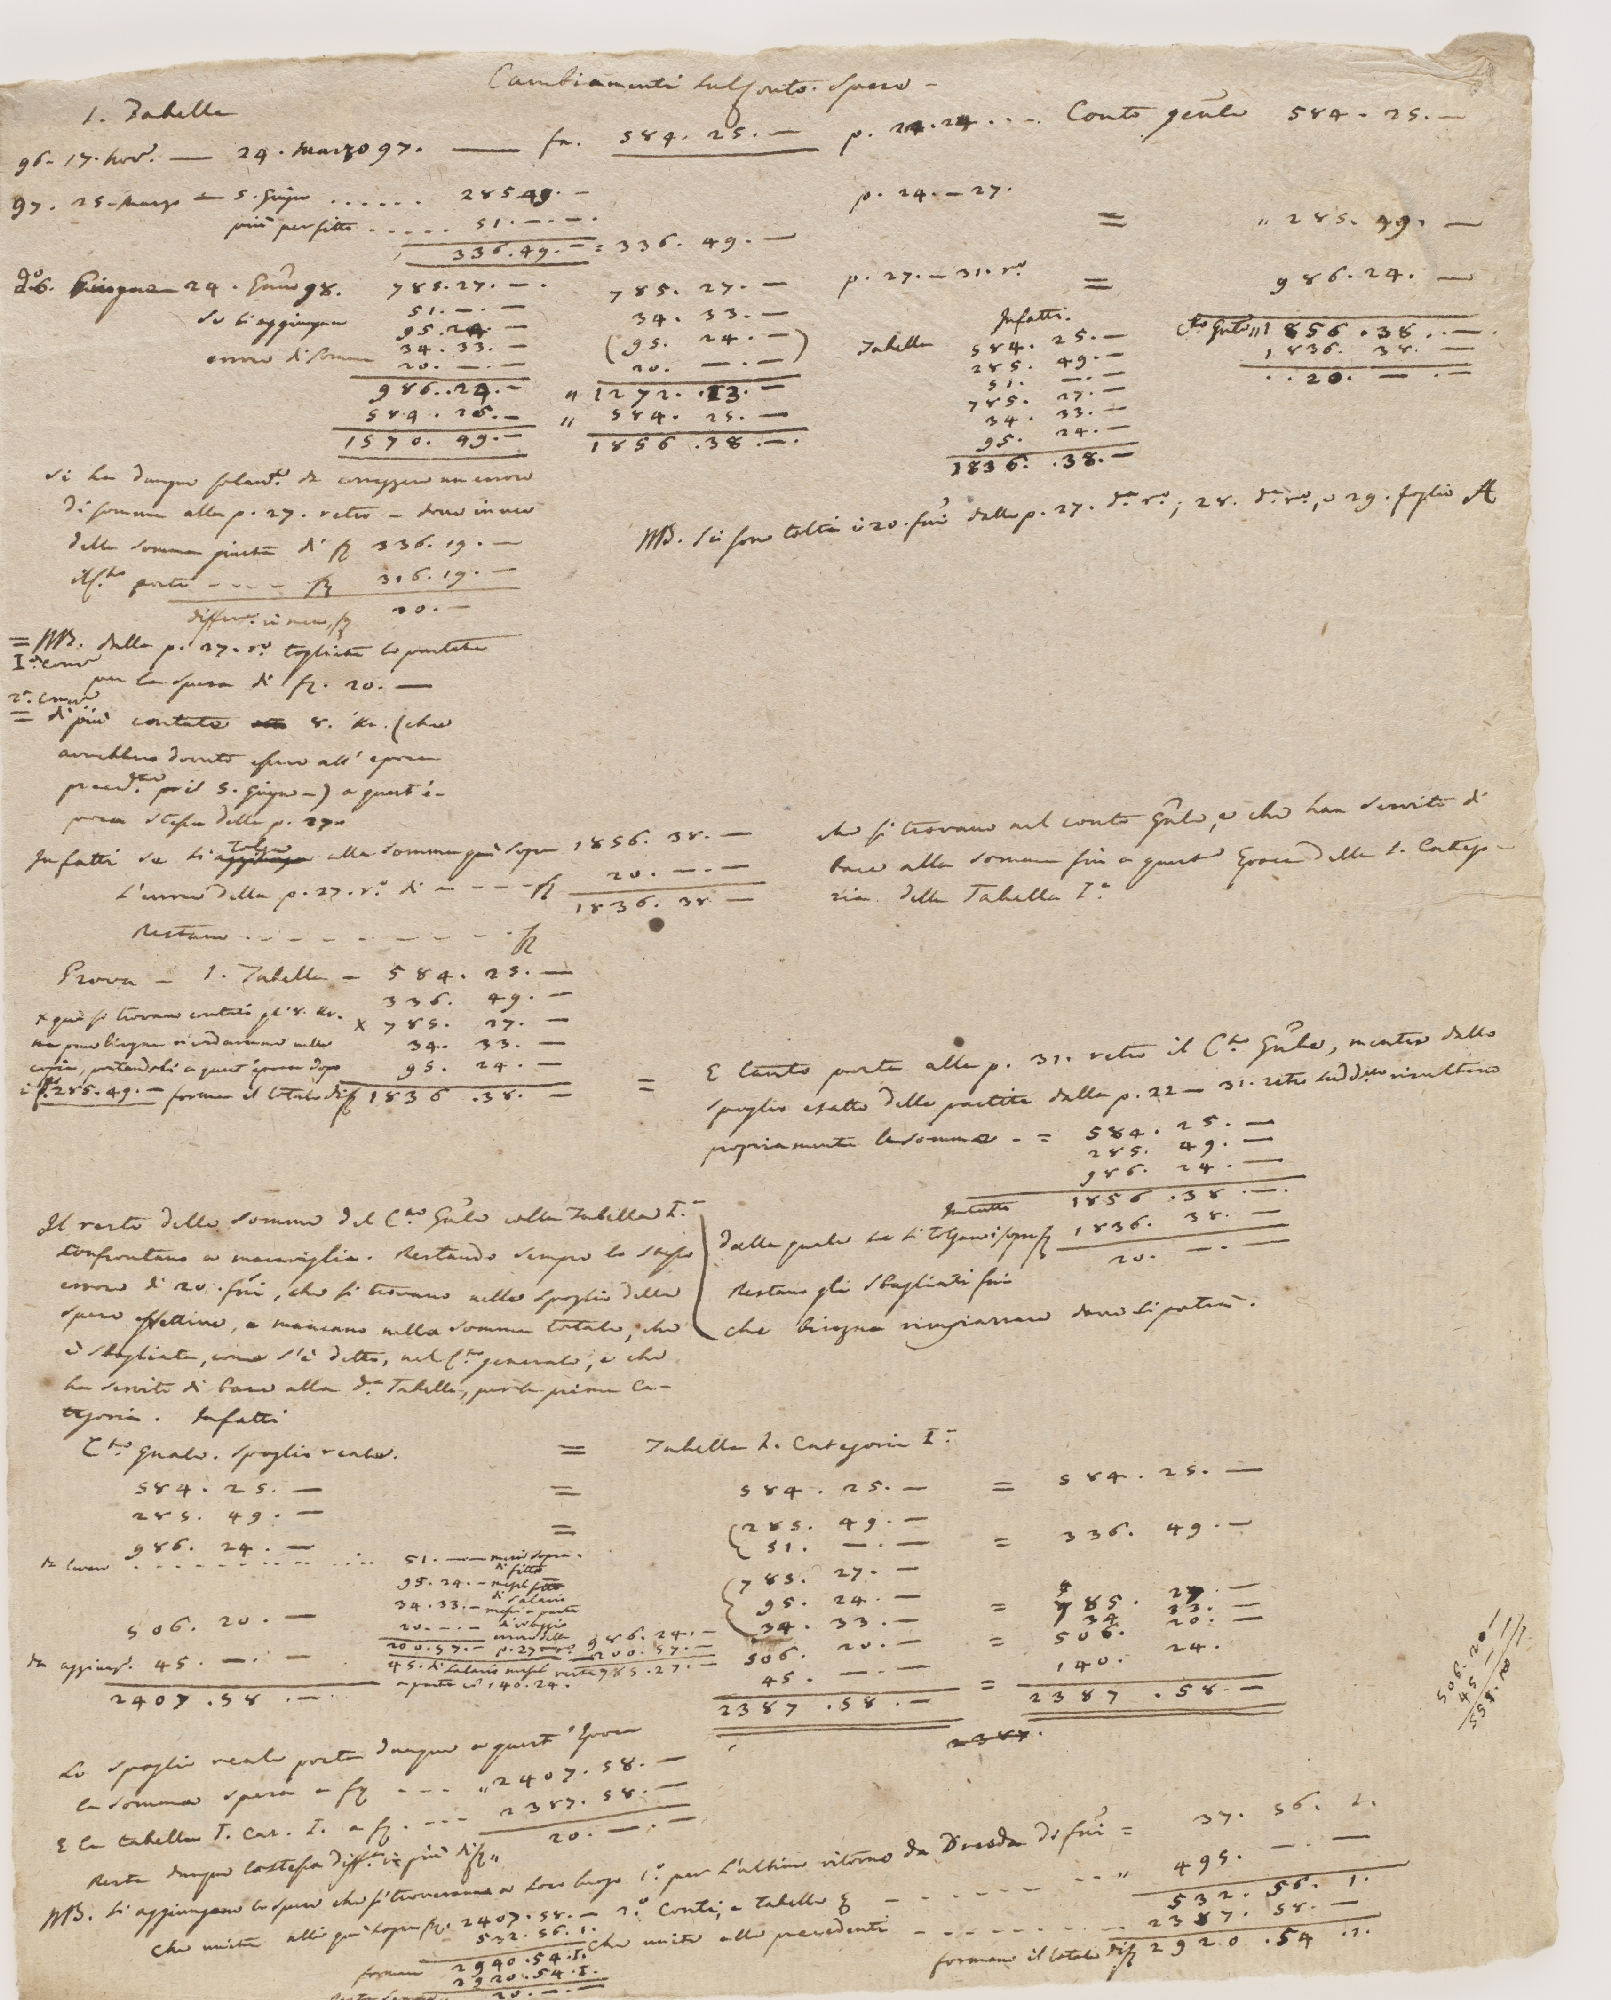 Cambiamenti sul Conto spese -
1. Tabella
96. 17. Nov.e — 24. Marzo 97. — fn. 584. 25. — p. 24.24 . . . . Conto genle 584. 25. —
97. 25. Marzo — 5. Giugno . . . . . . 285 49. — p. 24. — 27.
più per fitto . . . . . 51. — . — . = „ 285. 49. —
336. 49. — = 336. 49. —
do 6. Giugno — 24. Genro 98. 785. 27. — . 785. 27. — p. 27. — 31. ro = 986. 24. —
Se si aggiungano 51. — . — 34. 33. — Infatti.
95. 24. — (95. 24. —) Tabella 584. 25. — Cto Gnle „ 1856. 38. —
errore di somma 34. 33. — 20. — . — 285. 49. — 1836. 38. —
20. — . — 51. — . — . . 20. — . —
986. 24. — „ 1272. 13. — 785. 27. —
584. 25. — „ 584. 25. — 34. 33. —
1570. 49. — 1856. 38. — . 95. 24. —
1836. 38. —
Si ha dunque solamte da correggere un errore
di somma alla p. 27. retro — dove invece
della somma giusta di fz 336. 19. —
il Cto porta - - - - fz 316. 19. —
differ. in meno fz 20. —
NB. Si sono tolti i 20. fni dalla p. 27. da ro; 28. da ro, e 29. foglio A
= NB. dalla p. 27. ro togliete la partita
Ia corre per la spesa di fz. 20. —
2a corre
= di più contate 8. Kr. (che
avrebbero dovuto essere all' epoca
precedte p il 5. Giugno —) a quest' e-
poca stessa della p. 27.
Infatti se si tolgano alla somma qui sopra 1856. 38. —
L'errore della p. 27. ro di - - - - fz 20. — . —
1836. 38 —
Restano . . - - - - - - . fz
che si trovano nel conto Gnle, e che han servito di
base alla somma fin a questa Epoca della 1. Catego-
ria della Tabella Ia
Prova — 1. Tabella — 584. 25. —
336. 49. —
x qui si trovano contati gli 8. Kr. x 785. 27. —
34. 33. —
95. 24. —
copia, portandoli a quest' epoca dopo
i fz. 285. 49. — forman il totale di fz 1836. 38. — =
E tanto porta alla p. 31. retro il Cto Gnle, mentre dallo
spoglio esatto delle partite dalla p. 22 — 31. retro suddto risultano
propriamente la somma - = 584. 25. —
285. 49. —
986. 24. —
1856. 38. — .
dalla quale se si tolgano i sopra fz 1836. 38. —
20. — . —
Restano gli sbagliati fni
che bisogna ringiassare dove si potrà.
Il resto delle somme del Cto Gnle colla Tabella I.a
confrontano a maraviglia. Restando sempre lo stesso
errore di 20. fni, che si trovano nello spoglio delle
spese effettive, e mancano nella somma totale, che
è sbagliata, come s'è detto, nel Cto generale, e che
ha servito di base alla da Tabella, per la prima Ca-
tegoria. Infatti
Cto Gnale. Spoglio reale. = Tabella 1. Categoria I.a
584. 25. — = 584. 25. — = 584. 25. —
285. 49. — = {285. 49. — = 336. 49. —
986. 24. — 51. — . —
da levare . . . . . . 51. — — messi sopra.
di fitto {785. 27. —
95. 24. — messi fitto 95. 24. — = 785. 27. —
di Salario 34. 33. — 34 33. —
34. 33. — messi a parte
506. 20. — 20. — . — di viaggio 506. 20. — = 506. 20. —
errore della
200. 57. — p. 27 ro 986. 24. —
200. 57. —
da aggiungi. 45. — . — 45. di Salario messi resta 785. 27. — 45. — . — 140. 24.
a parte in 140. 24.
2407. 58. — 2387. 58. — = 2387. 58. —
2387.
506. 20
45
551. 20
Lo spoglio reale porta dunque a quest' Epoca
la somma spesa a fz - - - „ 2407. 58. —
E la tabella I. Cat. I. a fz. - - - 2387. 58. —
20. — . —
Resta dunque la stessa diffza in più di fz „
NB. Si aggiungano le spese che si troveranno a loro luogo 1.o per l'ultimo ritorno da Dresda di fni = 37. 56. 1.
2.o Conti, e tabelle - - - - - - - - „ 495. — . —
532. 56. 1.
Che unite alli qui sopra fz. 2407. 58. — Che unite alle precedenti - - - - - - . . . 2387. 58. —
532. 56. 1.
forman 2940. 54. 1. formano il totale di fz 2920. 54. 1.
2920. 54. 1.
20. — . —